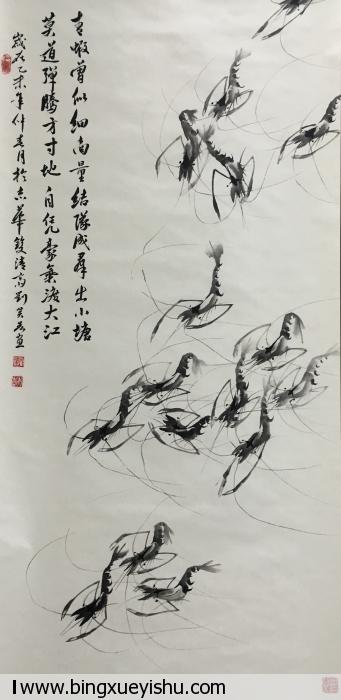 青蝦曾似細商量結隊成群出小塘
莫道彈騰方寸地自凭豪氣渡大江
歲在乙未年仲春月於京華雙清劉
www.bingxueyishu.com